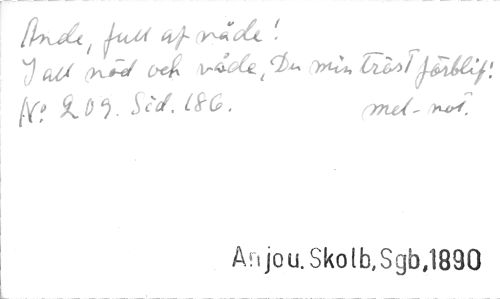 Ande, full af nåde!
I all nöd och våde, Du min tröst förblif!
No 209. Sid. 186. mel-not.
Anjou. Skolb, Sgb, 1890